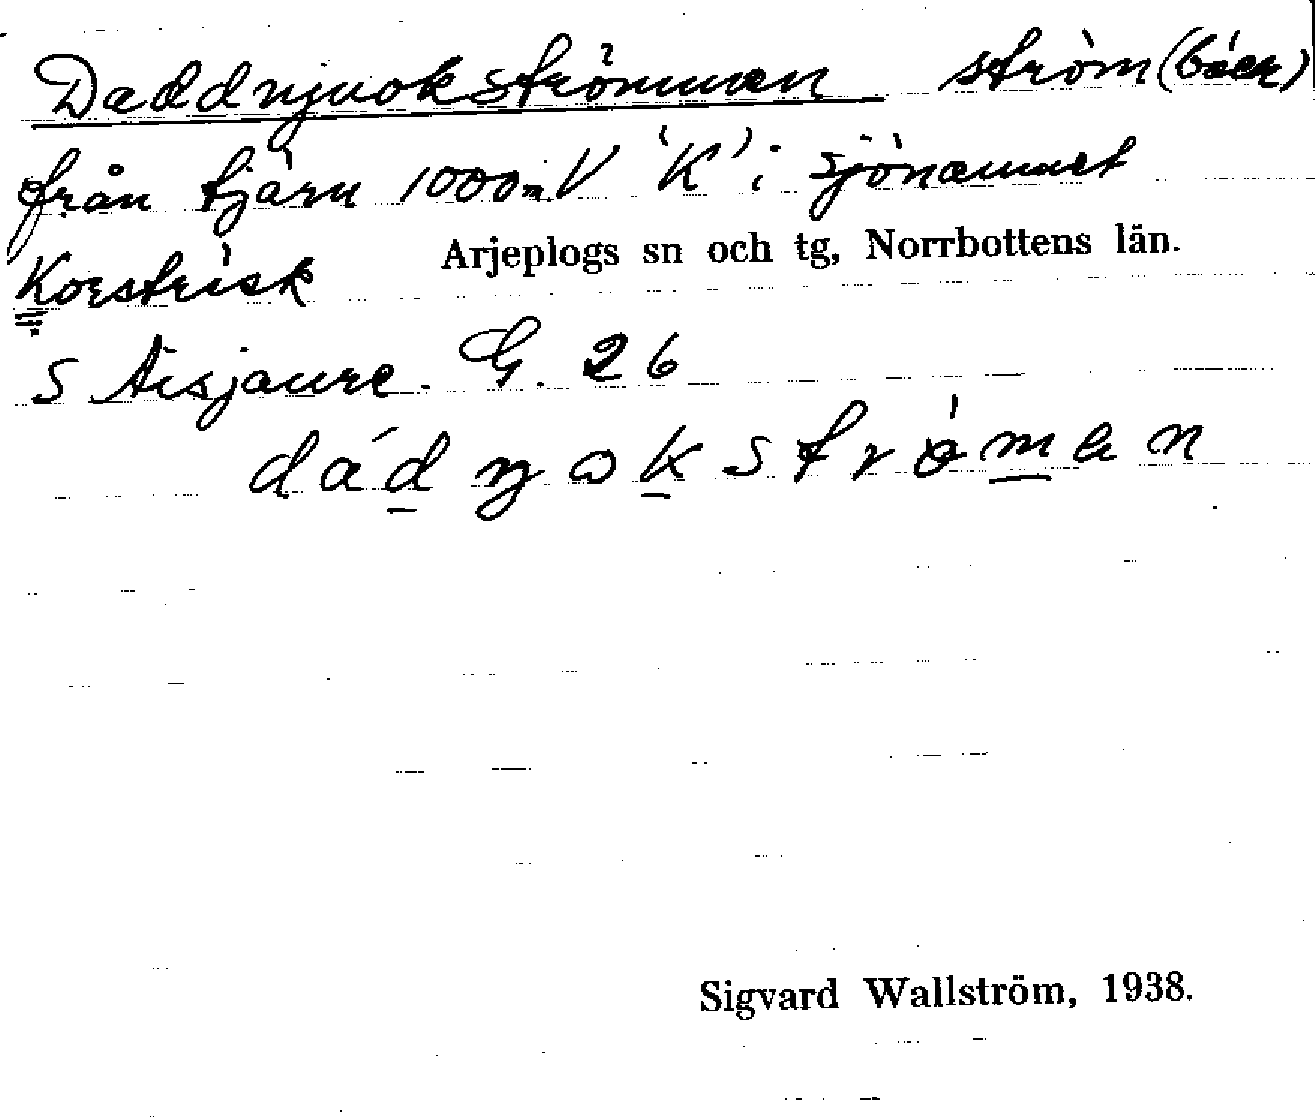 Daddnjuokströmmen ström (bäck)
från tjärn 1000 m V 'K' i sjönamnet
Korsträsk
Arjeplogs sn och tg, Norrbottens län.
S Aisjaure. G. 26
dádŋokströmen
Sigvard Wallström, 1938.